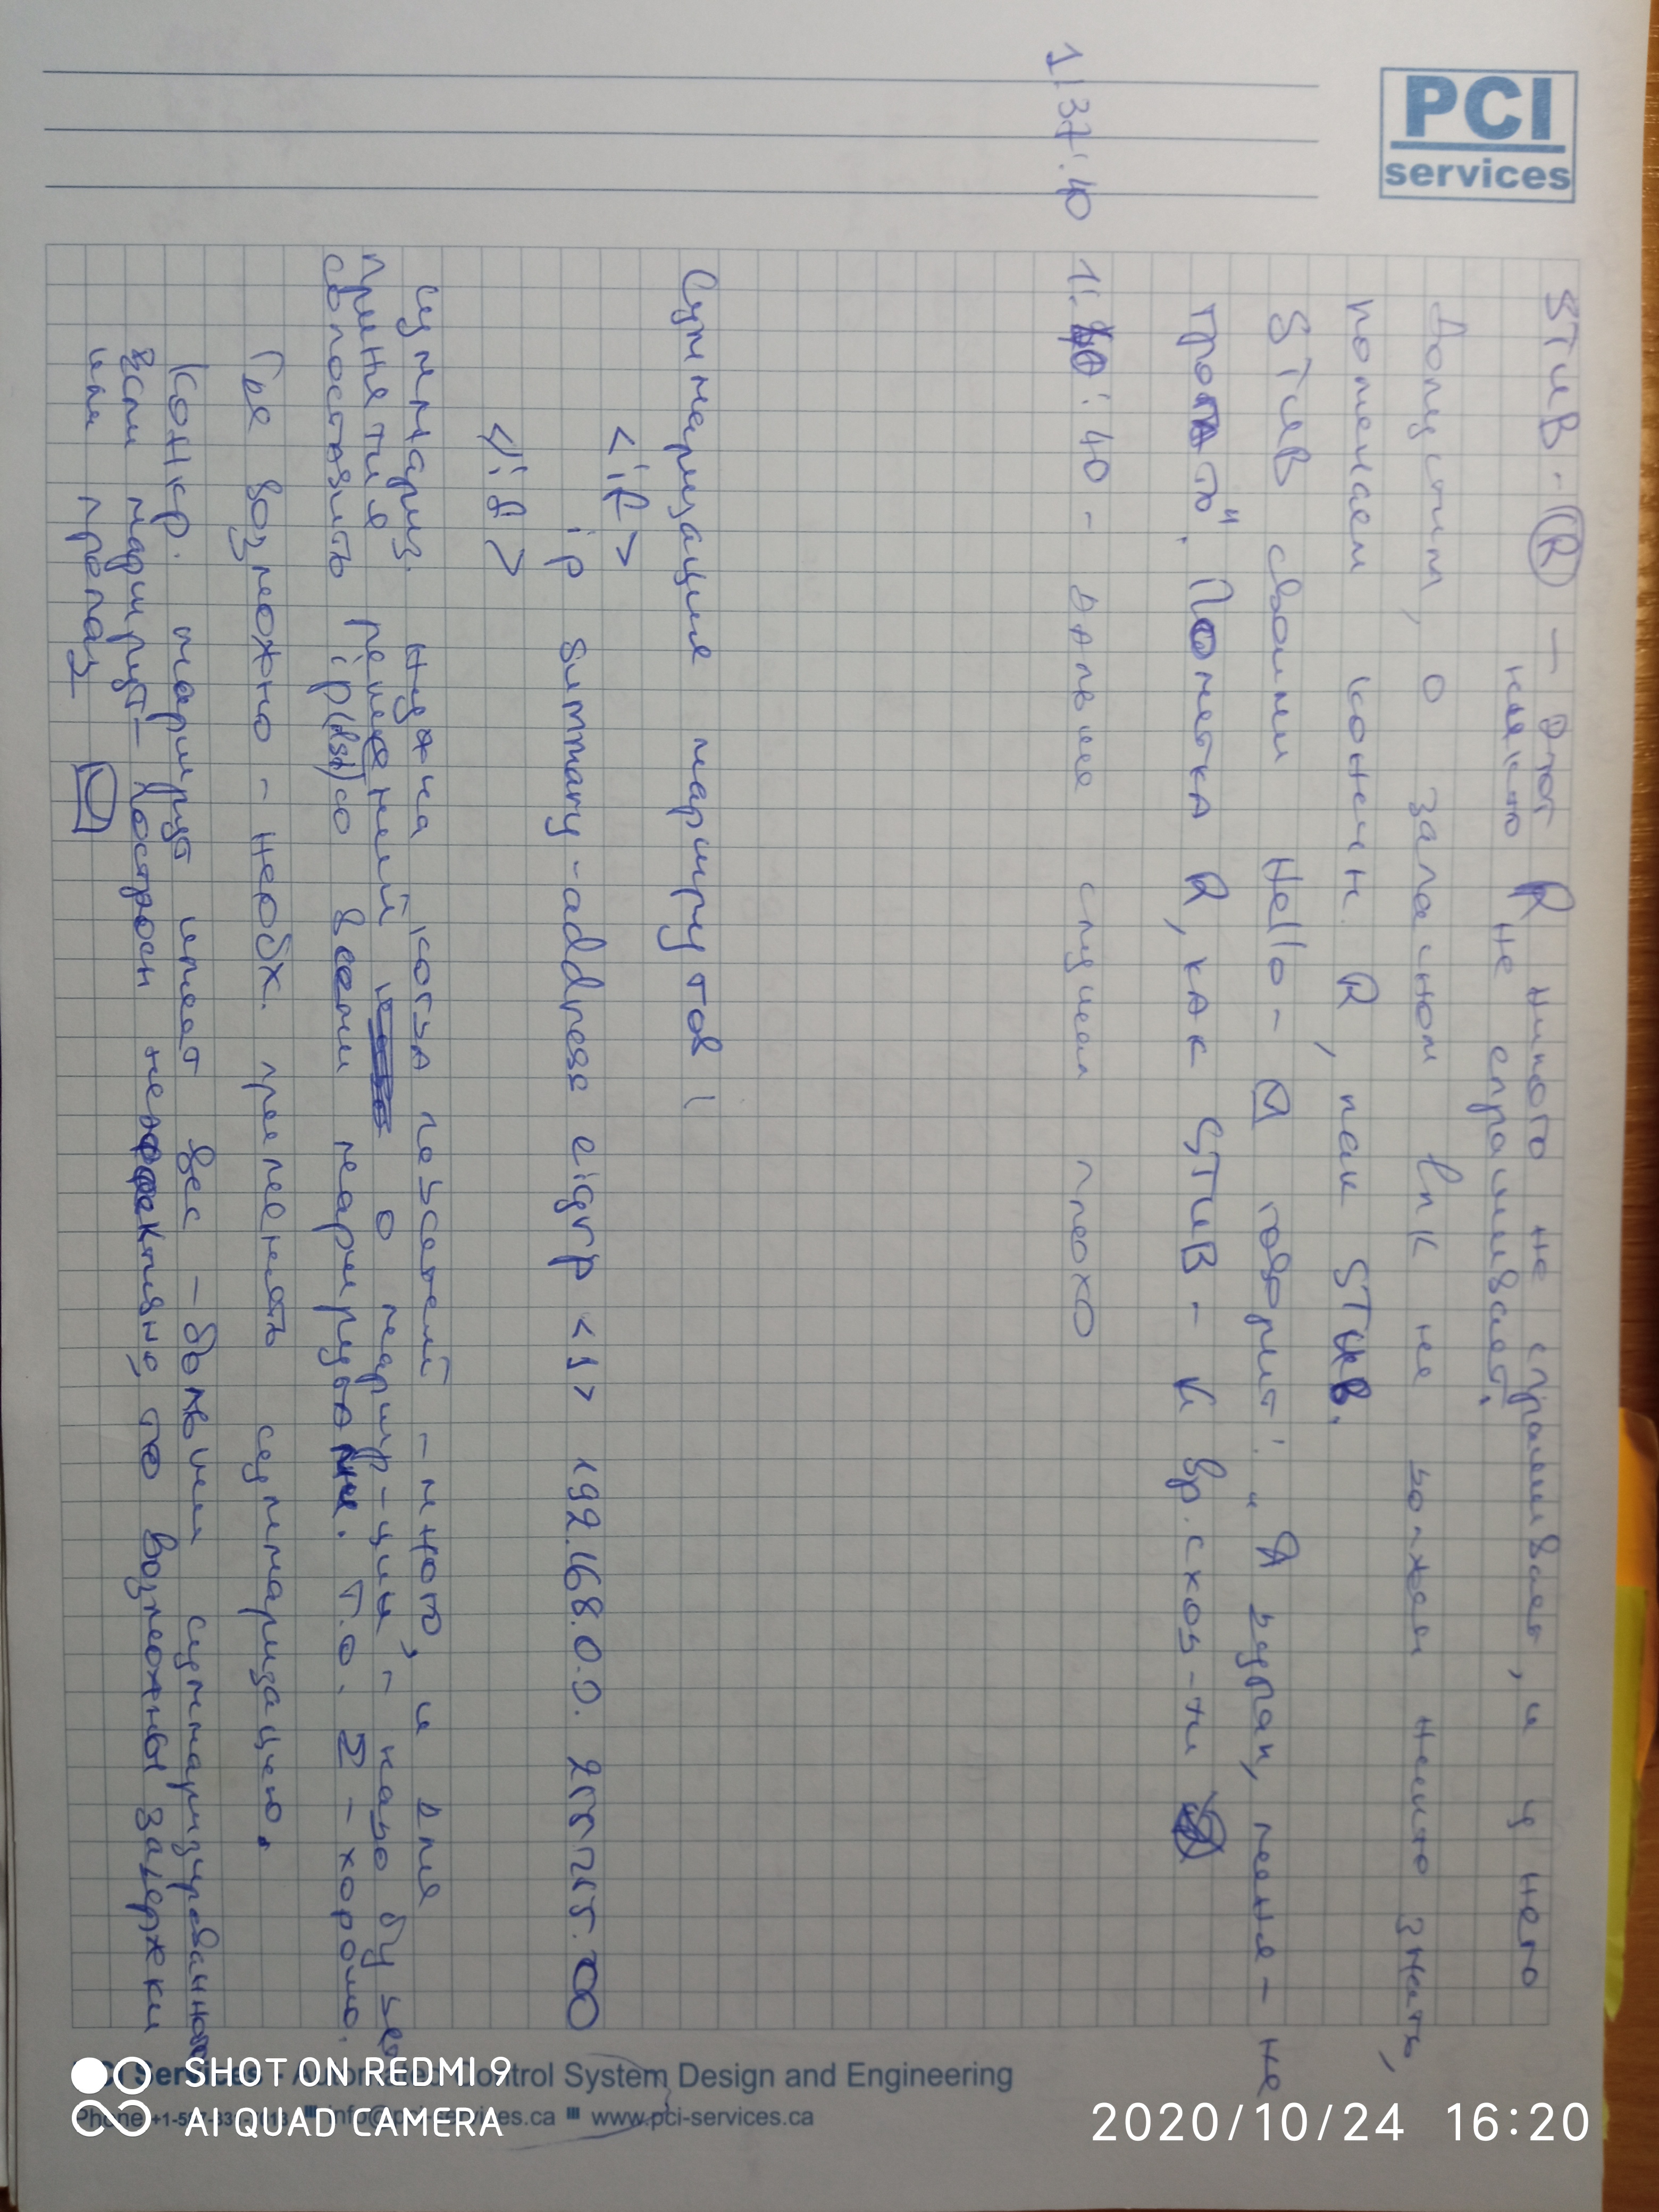 PCI
services
STUB - (R) — Этот R никого не спрашивает, и у него
никто не спрашивает.
Допустим, о запасном lnk не должен никто знать,
помечаем конечн. R, как STUB.
STUB своими Hello - говорит: „Я дурак, меня - не
трогать". Пометка R, как STUB - к вр. сход-ти
1:37:40 1: :40 - дальше слушал плохо
Суммаризация маршрутов:
<if>
ip summary-address eigrp <1> 192.168.0.0. 255.255.0.0
</if>
суммариз. нужна когда подсетей - много, и для
принятия решений о маршр-ции - надо будет
сопоставить ip(dst) со всеми маршрутами. Т.о. Σ - хорошо.
Где возможно - необх. применять суммаризацию.
Конкр. маршрут имеет вес - больший суммаризированного
Если маршрут - построен неэффективно, то возможны задержки
или пропад
Control System Design and Engineering
www.pci-services.ca
2020/10/24 16:20
SHOT ON REDMI 9
AI QUAD CAMERA